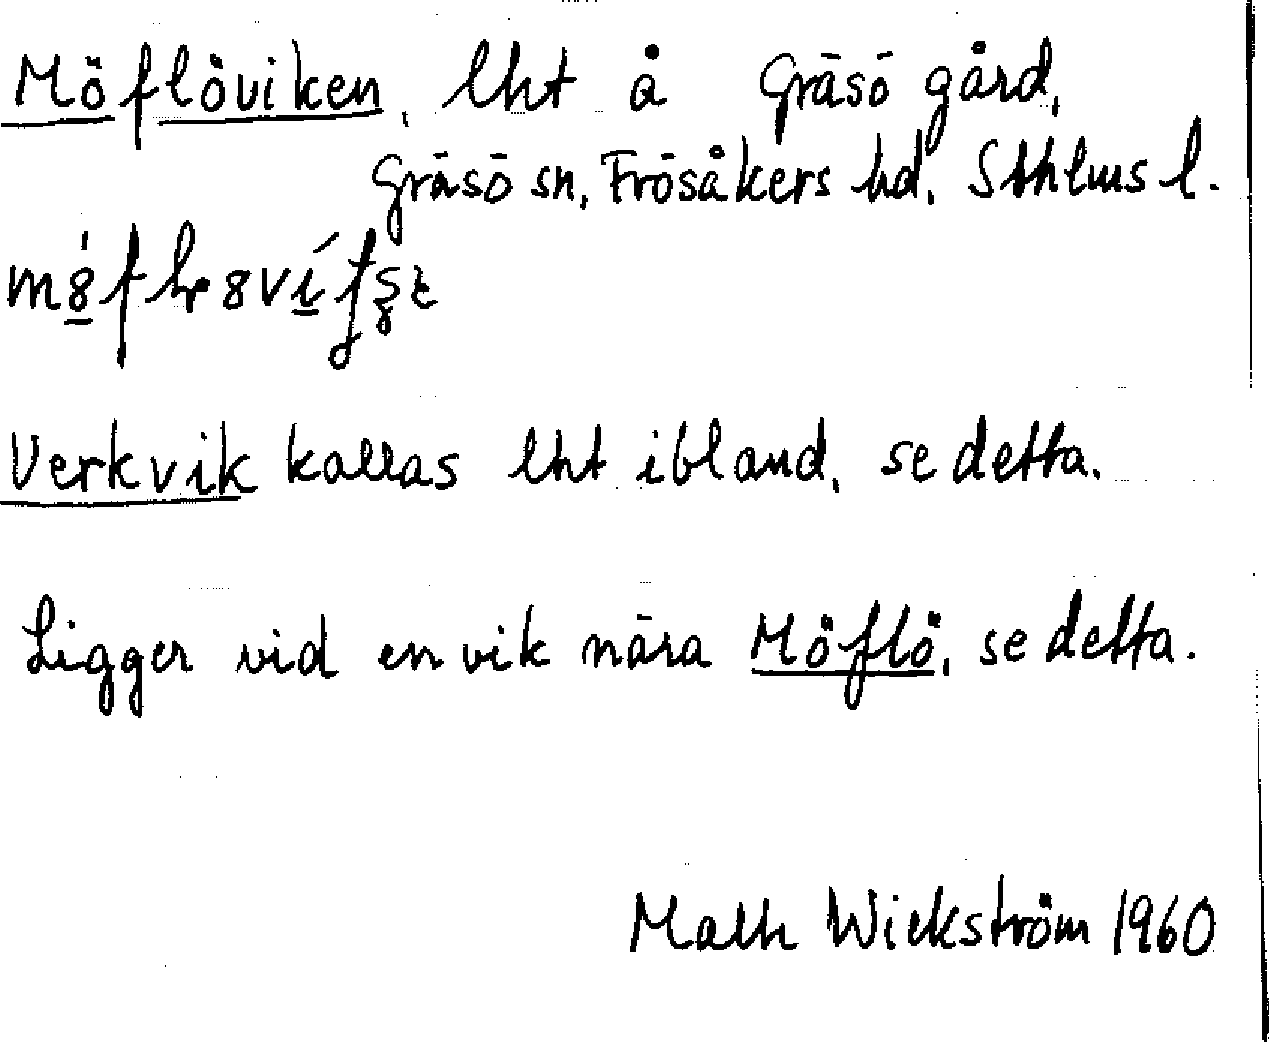 Möflöviken, lht å Gräsö gård,
Gräsö sn, Frösåkers hd, Sthlms l.
Verkvik kallas lht ibland, se detta.
Ligger vid en vik nära Möflö, se detta.
Math Wickström 1960